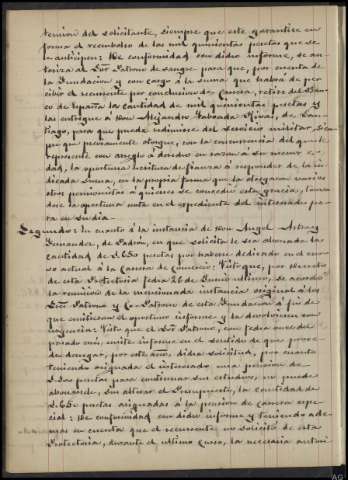 termino del solicitante, siempre que este garantice en
forma el reembolso de las mil quinientas pesetas que se
le anticipen: De conformidad con dicho informe, se au-
toriza al Sor Patrono de sangre para que, por cuenta de
la Fundacion y con cargo á la suma que habrá de per-
cibir el recurrente por conclusion de Carrera, retire del Ban-
co de España la cantidad de mil quinientas pesetas y
las entregue á Don Alejandro Taboada Rivas, de San-
tiago, para que pueda redimirse del servicio militar, siem-
pre que previamente otorgue, con la concurrencia del que le
represente con arreglo á derecho en razon á su menor e-
dad, la oportuna escritura de fianza á responder de la in-
dicada suma, en la propia forma que la otorgaron varios
otros pensionistas á quienes se concedió esta gracia, toman-
dose la oportuna nota en el expediente del interesado pa-
ra en su dia.
Segundo: En cuanto á la instancia de Don Angel
Fernandez, de Padrón, en que solicita le sea abonada la
cantidad de 265 pesetas por haberse dedicado en el cur-
so actual á la Carrera de Comercio: Visto que, por decreto
de esta Protectoria fecha 26 de Enero ultimo, se acordó
la remision de la mencionada instancia original á los
Sres Patrono y Co-Patrono de esta Fundacion á fin de
que emitiesen el oportuno informe y la devolviesen con
urgencia: Visto que el Sor Patrono, con fecha once del
pasado mes, emite informe en el sentido de que proce-
de denegar, por este año, dicha solicitud, por cuanto
teniendo asignada el interesado una pension de
pesetas para continuar sus estudios, no puede
abonarsele, sin alterar el Presupuesto, la cantidad de
265 pesetas asignadas á la pension de carrera espe-
cial: De conformidad con dicho informe y teniendo ade-
mas en cuenta que el recurrente no solicitó de esta
Protectoria, durante el ultimo Curso, la necesaria autori-
AG